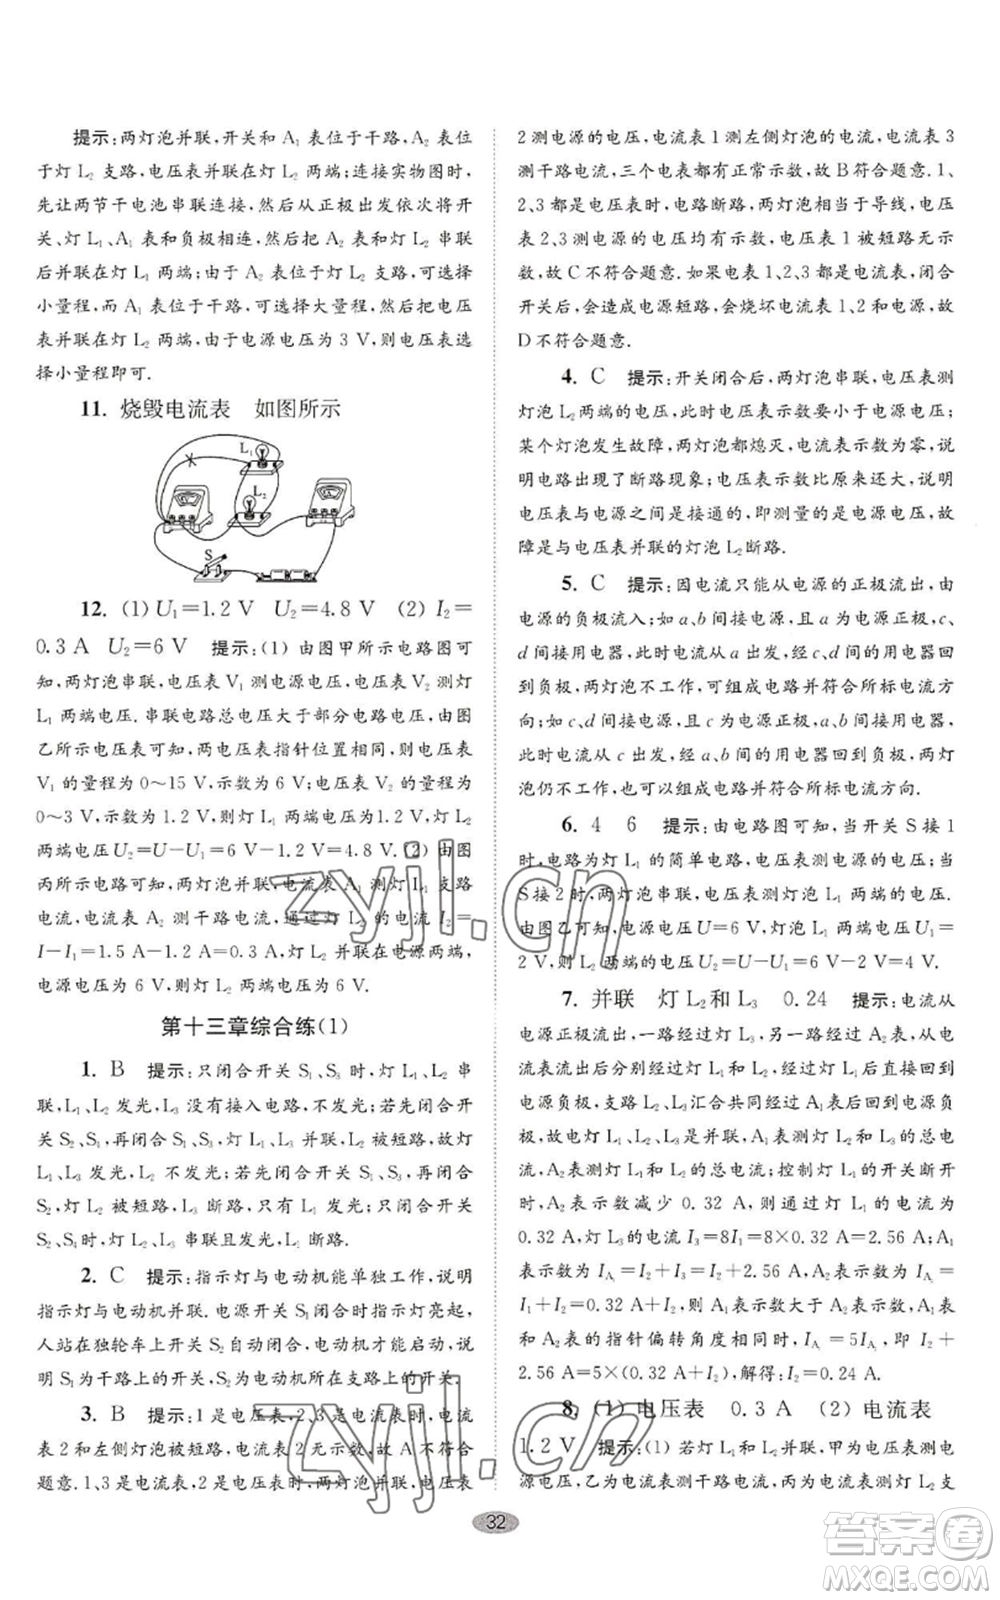 提示:两灯泡并联,开关和 A₁ 表位于干路,A₂ 表位
于灯 L₂ 支路,电压表并联在灯 L₂ 两端;连接实物图时,
先让两节干电池串联连接,然后从正极出发依次将开
关、灯 L₁、A₁ 表和负极相连,然后将 A₂ 表和灯 L₂ 串联
后并联在灯 L₁ 两端;由于 A₂ 表位于灯 L₂ 支路,可选择
小量程,而 A₁ 表位于干路,可选择大量程;然后把电压
表并联在灯 L₂ 两端,由于电源电压为 3 V,则电压表选
择小量程即可.
11. 烧毁电流表 如图所示
L₁
L₂
S
12. (1) U₁=1.2 V U₂=4.8 V (2) I₂=
0.3 A U₂=6 V 提示:(1) 由图甲所示电路图可
知,两灯泡串联,电压表 V₁ 测电源电压,电压表 V₂ 测灯
L₁ 两端电压.串联电路总电压大于部分电路电压,由图
乙所示电压表可知,两电压表指针位置相同,则电压表
V₁ 的量程为 0～15 V,示数为 6 V;电压表 V₂ 的量程为
0～3 V,示数为 1.2 V,则灯 L₁ 两端电压为1.2 V,灯 L₂
两端电压U₂=U-U₁=6 V-1.2 V=4.8 V.(2) 由图
丙所示电路可知,两灯泡并联,电流表 A₁ 测灯 L₁ 支路
电流,电流表 A₂ 测干路电流,通过灯 L₂ 的电流 I₂=
I-I₁=1.5 A-1.2 A=0.3 A;灯 L₂ 并联在电源两端,
电源电压为 6 V,则灯 L₂ 两端的电压为 6 V.
第十三章综合练(1)
1. B 提示:只闭合开关 S₁、S₃ 时,灯 L₁、L₂ 串
联,L₁、L₂ 发光,L₃ 没有接入电路,不发光;若先闭合开关
S₂、S₁,再闭合 S₃,灯 L₁、L₃ 并联,L₂ 被短路,故灯 L₁、
L₃ 发光,L₂ 不发光;若先闭合开关 S₂、S₃,再闭合 S₁,
L₂ 被短路,L₁ 断路,只有 L₃ 发光;只闭合开关
S₂、S₄时,灯 L₂、L₃ 串联且发光,L₁ 断路.
2. C 提示:指示灯与电动机能单独工作,说明
指示灯与电动机并联.电源开关 S₁闭合时指示灯亮起,
人站在独轮车上开关 S₂自动闭合,电动机才能启动,说
明 S₁为干路上的开关,S₂为电动机所在支路上的开关.
3. B 提示:1 是电压表,2、3 是电流表时,电流
表 2 和左侧灯泡被短路,电流表 2 无示数,故 A 不符合
题意.1、3 是电流表,2 是电压表时,两灯泡并联,电压表
2 测电源的电压,电流表 1 测左侧灯泡的电流,电流表 3
测干路电流,三个电表都有正常示数,故 B 符合题意.1、
2、3 都是电压表时,电路断路,两灯泡相当于导线,电压
表 2、3 测电源的电压均有示数,电压表 1 被短路无示
数,故 C 不符合题意.如果电表 1、2、3 都是电流表,闭合
开关后,会造成电源短路,会烧坏电流表 1、2 和电源,故
D 不符合题意.
4. C 提示:开关闭合后,两灯泡串联,电压表测
灯泡 L₂ 两端的电压,此时电压表示数要小于电源电压;
某个灯泡发生故障,两灯泡都熄灭,电流表示数为零,说
明电路出现了断路现象;电压表示数比原来还大,说明
电压表与电源之间是接通的,即测量的是电源电压,故
障是与电压表并联的灯泡 L₂断路.
5. C 提示:因电流只能从电源的正极流出,由
电源的负极流入;如a、b 间接电源,且a为电源正极,c、
d 间接用电器,此时电流从a 出发,经 c、d 间的用电器
回到负极,两灯泡不工作,可组成电路并符合所标电流方
向;如c、d间接电源,且c为电源正极,a、b间接用电器,
此时电流从 c 出发,经 a、b 间的用电器回到负极,两灯
泡仍不工作,也可以组成电路并符合所标电流方向.
6. 4 6 提示:由电路图可知,当开关 S 接 1
时,电路为灯 L₁ 的简单电路,电压表测电源的电压;当
S接 2 时,两灯泡串联,电压表测灯泡 L₁ 两端的电压.
由图乙可知,电源电压 U=6 V,灯泡 L₁ 两端的电压 U₁=
2 V,则 L₂ 两端的电压U₂=U-U₁=6 V-2 V=4 V.
7. 并联 灯 L₂和 L₃ 0.24 提示:电流从
电源正极流出,一路经过灯 L₃,另一路经过 A₂表,从电
流表流出后分别经过 L₁ 和 L₂,与支路 L₃汇合后流回
电源负极,支路 L₂、L₃汇合共同经过 A₁表后回到电源负
极,故灯 L₁、L₂、L₃是并联,A₁表测灯 L₂ 和 L₃ 的总电
流,A₂ 表测灯 L₁ 和 L₂ 的总电流;控制灯 L₁ 的开关断开
时,A₂ 表示数减少 0.32 A,则通过灯 L₁ 的电流为
0.32 A,通过灯 L₃ 的电流 I₃=8I₁=8×0.32 A=2.56 A,故
A₁ 表的示数为 I_A₁=I₂+I₃=I₂+2.56 A,A₂表的示数为 I_A₂=
I₁+I₂=0.32 A+I₂,A₁ 表示数大于 A₂ 表示数,A₁表
和 A₂ 表的指针偏转角度相同时,I_A₁=5I_A₂,即 I₂+
2.56 A=5×(0.32 A+I₂),解得:I₂=0.24 A.
8. (1) 电压表 0.3 A (2) 电流表
1.2 V 提示:(1) 若灯 L₁、L₂并联,甲为电压表测电
源电压,乙为电流表测干路电流,丙为电流表测灯 L₂支
32
zyjl.cn
zyjl.cn
答案圈
MXQE.COM